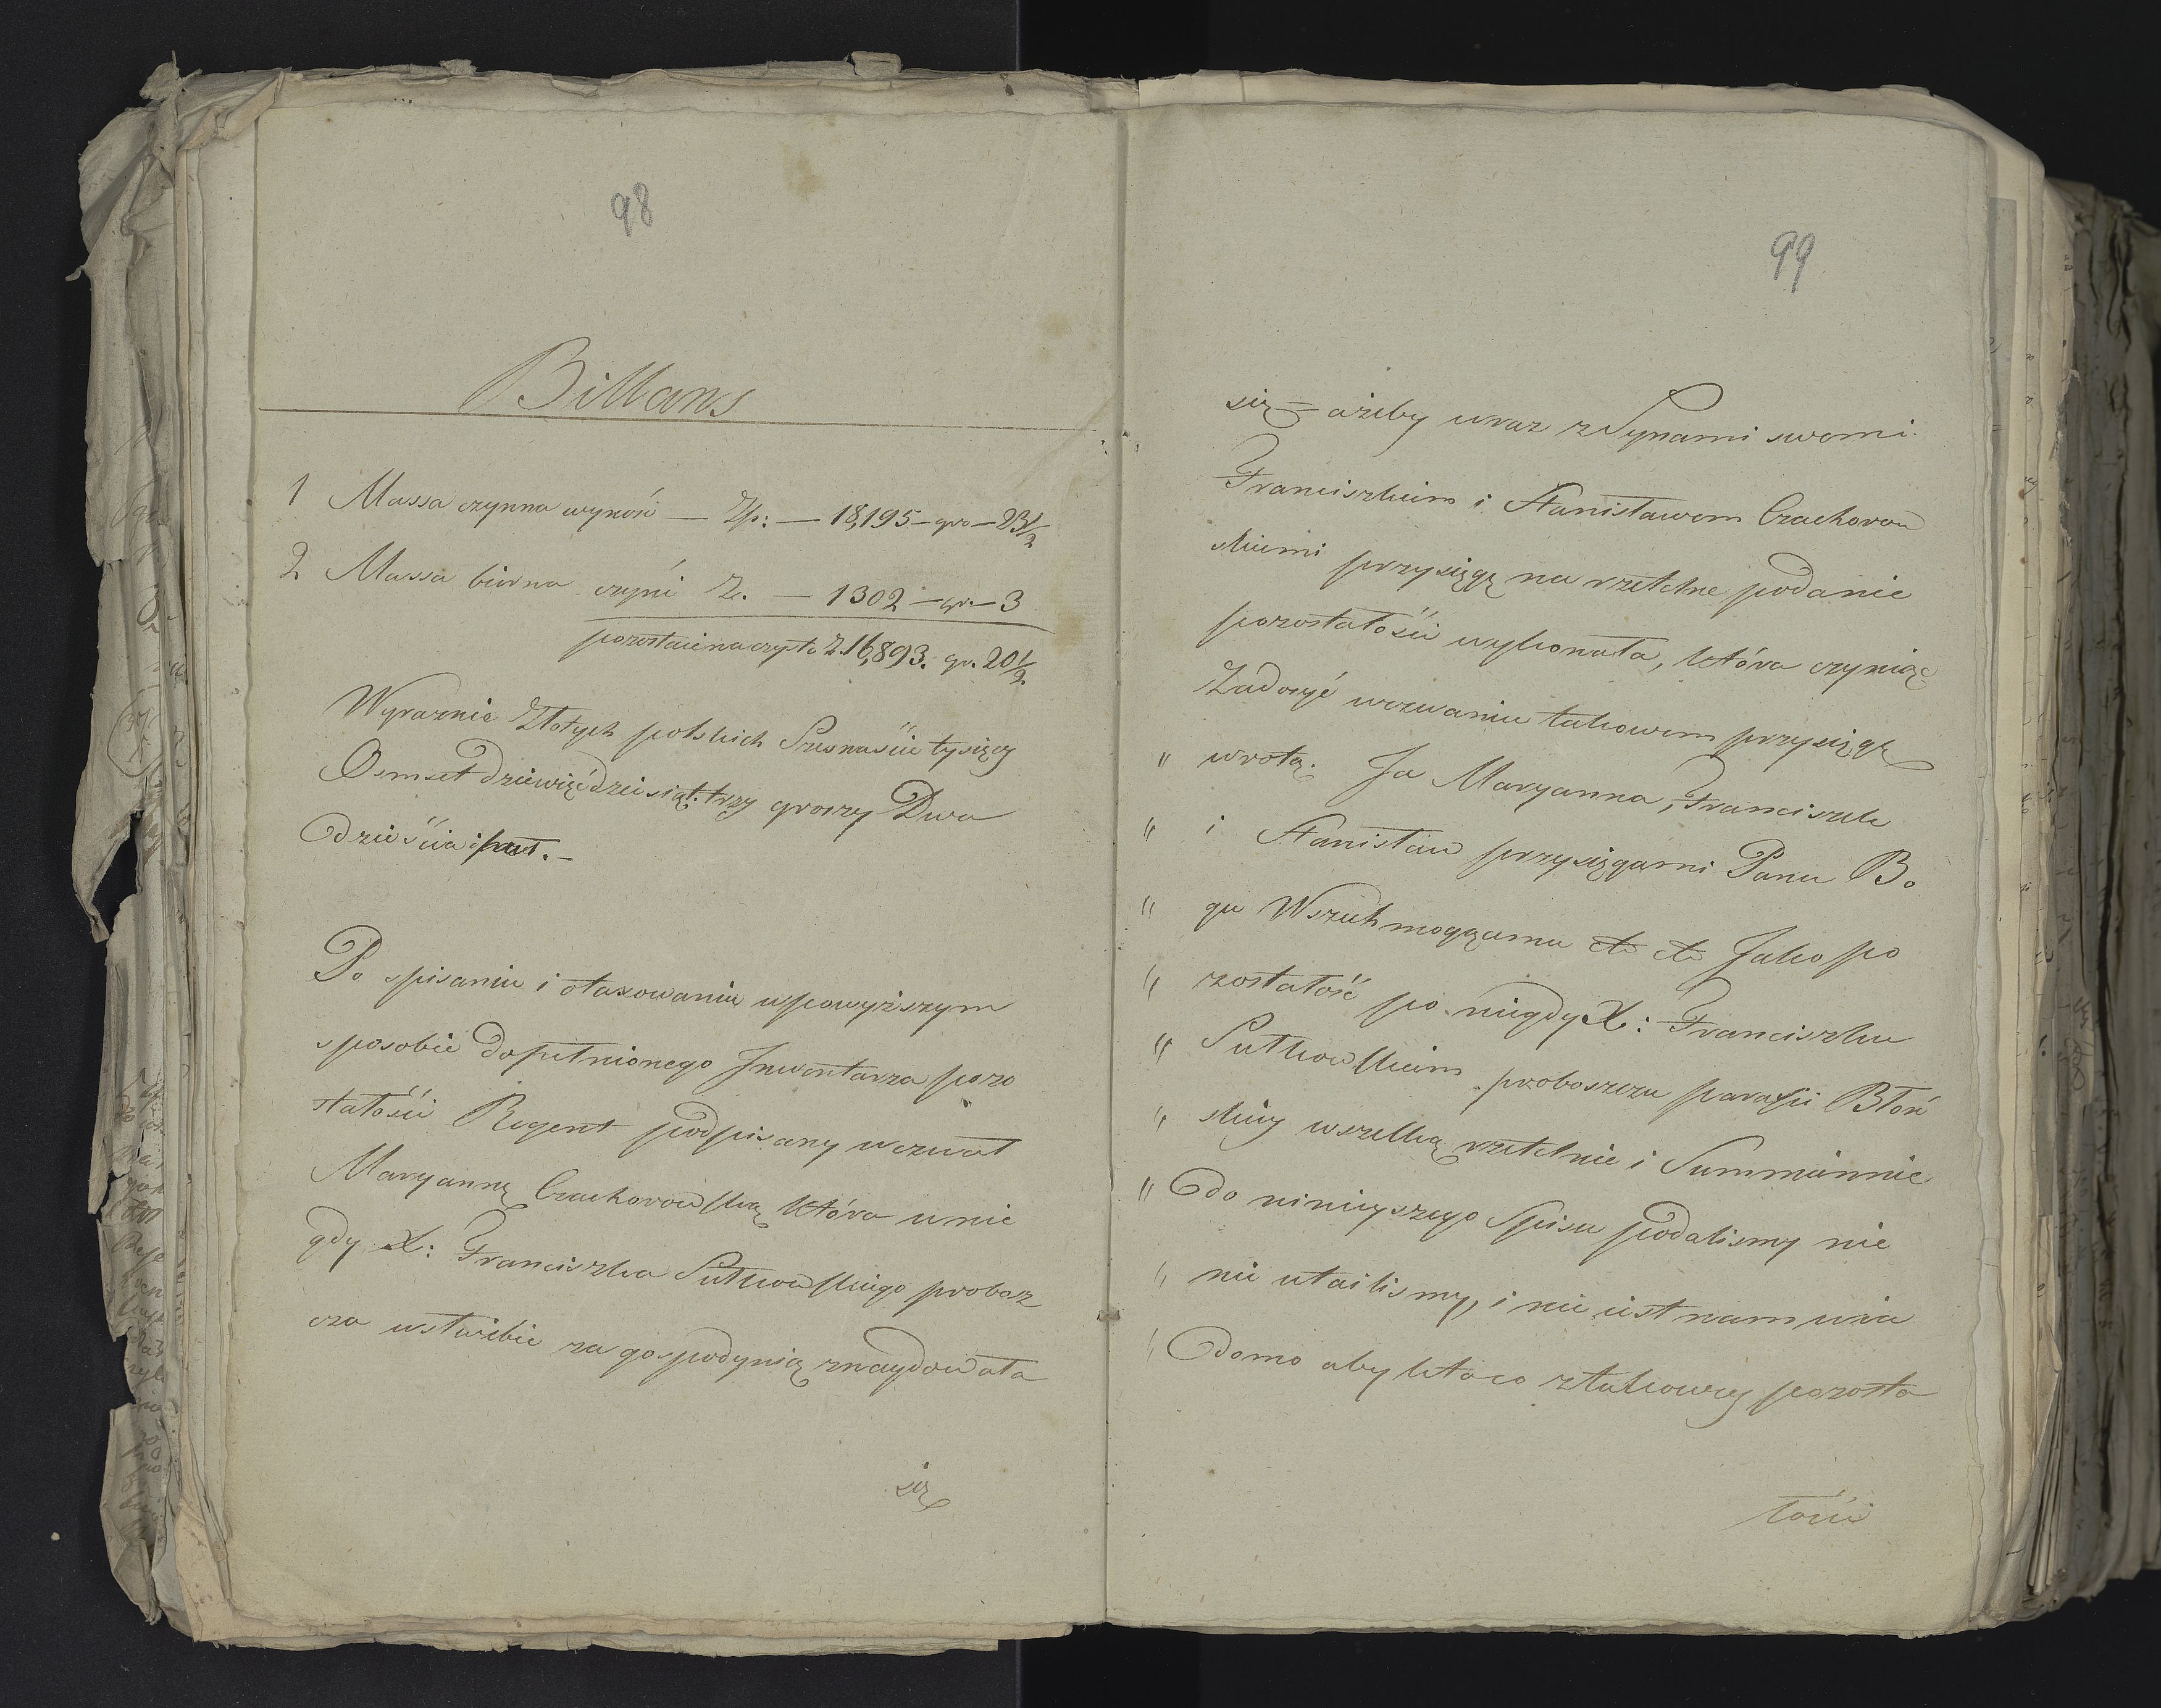 98
Billans
1 Massa czynna wynosi — Zp: — 18,195 — gro — 23½
2 Massa bierna czyni Zł. — 1302 — gr. — 3
pozostaie na czysto Z 16,893. gr. 20½.
Wyraznie Złotych polskich Szesnaście tysięcy
Osmset dziewięćdziesiąt trzy groszy Dwa
dzieścia i puł. —
Po spisaniu i otaxowaniu w powyższym
sposobie dopełnionego Inwentarza pozo
stałości Regent podpisany wezwał
Maryannę Czachorowską która u nie
gdy X: Franciszka Sutkowskiego probosz
cza w służbie za gospodynią znaydowała
się
99
się = ażeby wraz z Synami swemi
Franciszkiem i Stanisławem Czachorow
skiemi przysięgę na rzetelne podanie
pozostałości wykonała, która czyniąc
Zadosyć wezwaniu takowem przysięgę
" w rotę. Ja Maryanna, Franciszek
" i Stanisław przysięgami Panu Bo
" gu Wszechmogącemu etc etc Jako po
" zostałość po niegdy X: Franciszku
" Sutkowskiem proboszczu parafii Błoń
" skiey wszelką rzetelnie i Summiennie
" do ninieyszego Spisu podalismy nic
" nie utailismy, i nie iest nam wia
" domo aby kto co z takowey pozosta
łości